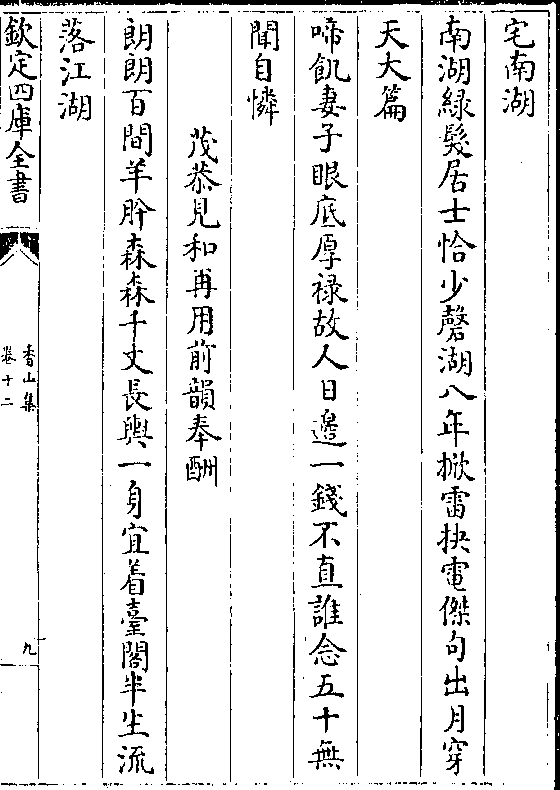 宅南湖
南湖緑髮居士恰少磬湖八年掀雷抉電傑句出月穿
天大篇
啼飢妻子眼底厚禄故人日邊一錢不直誰念五十無
聞自憐
茂恭見和再用前韻奉酬
朗朗百間羊肸森森千丈長輿一身宜着臺閣半生流
落江湖
欽定四庫全書
香山集
卷十二
九